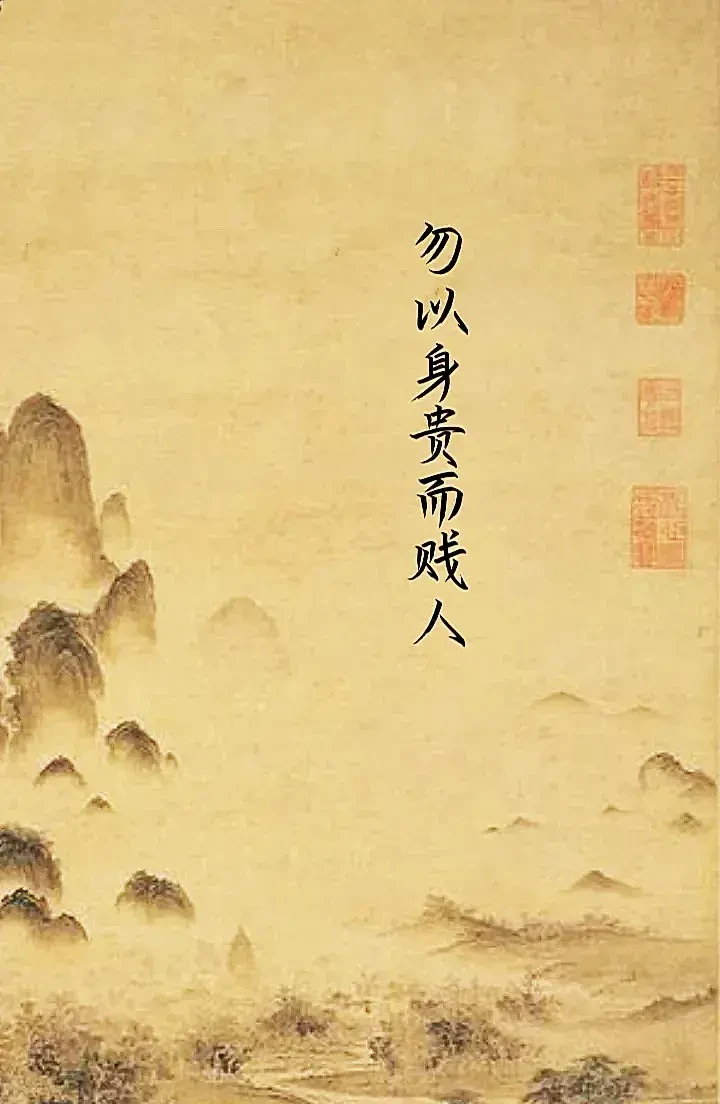 勿以身贵而贱人